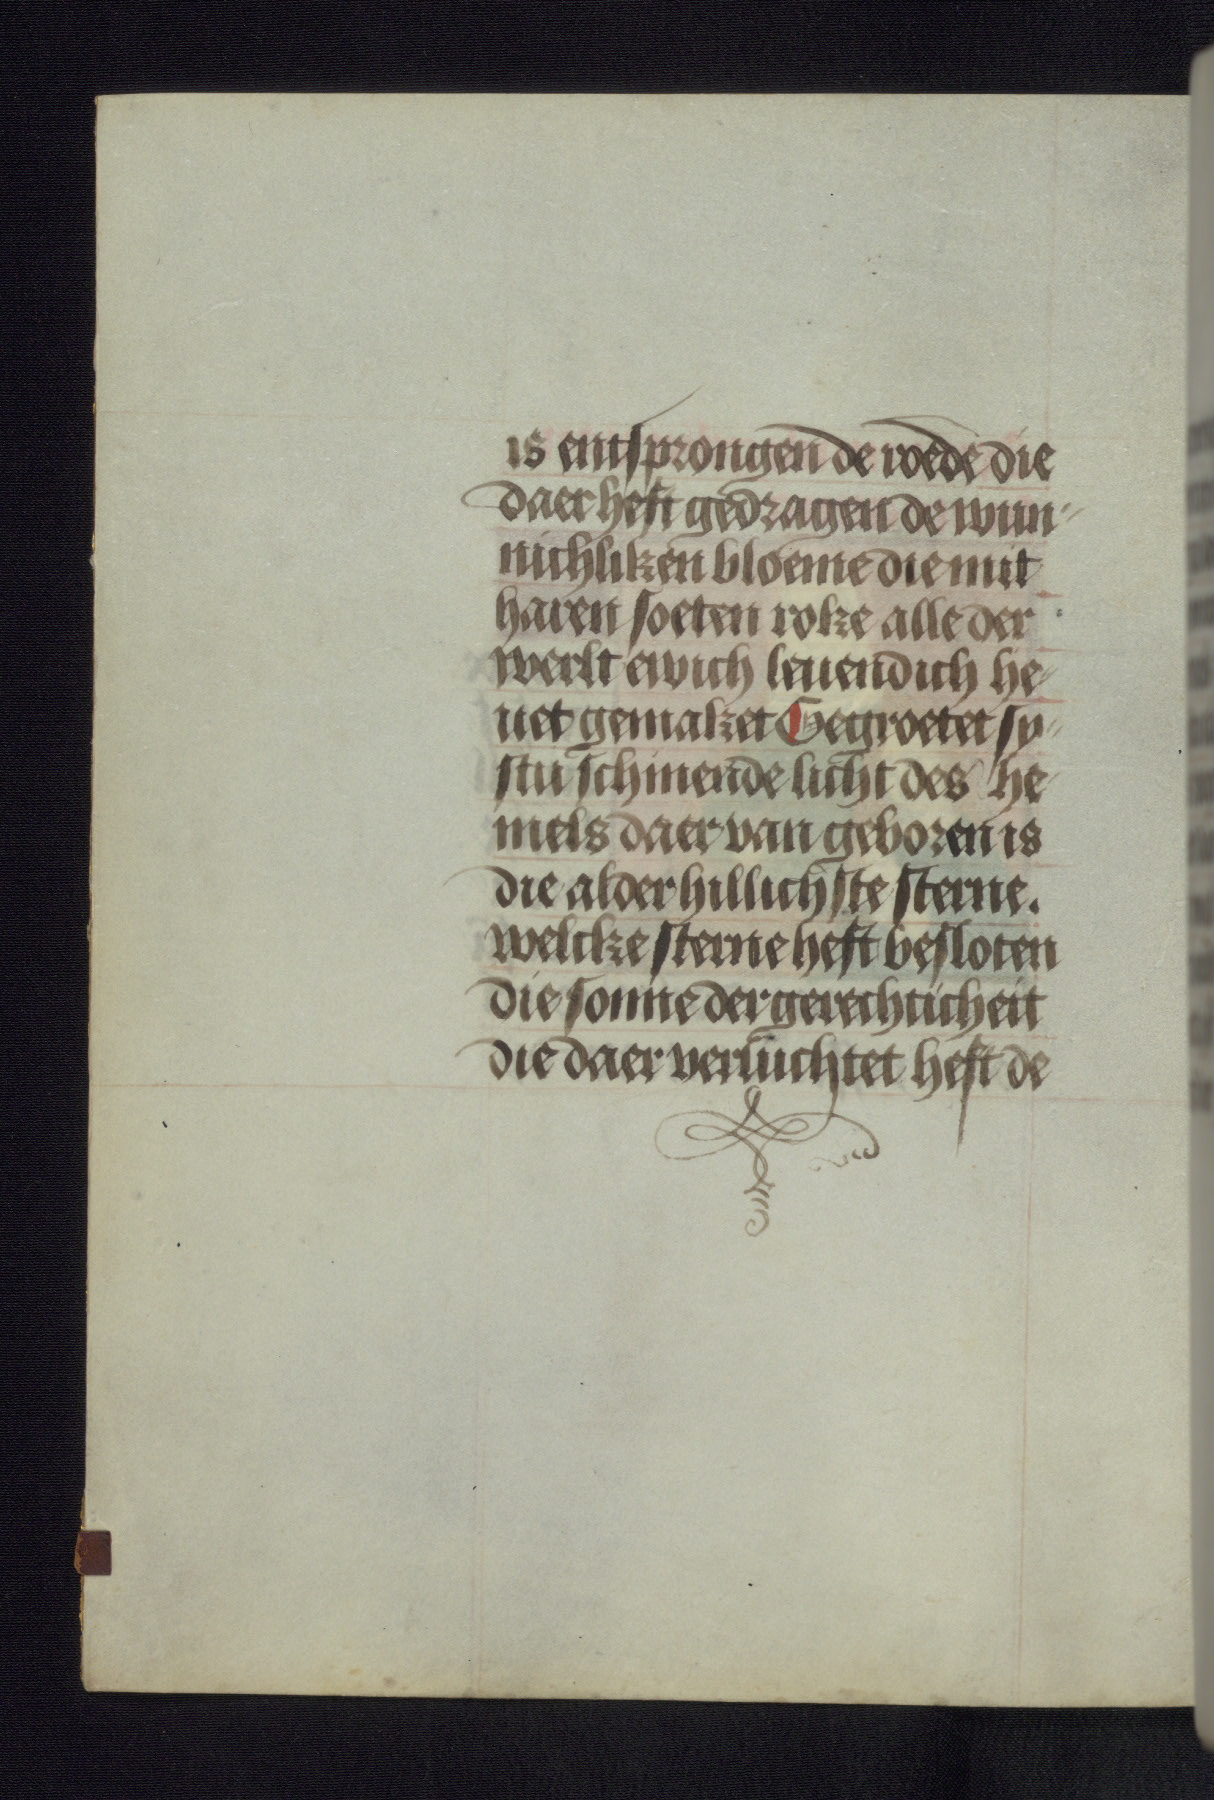 is entsprongen de roede die
daer heft gedragen de wun-
nichliken bloeme die mit
haren soeten roke alle der
werlt ewich leuendich he-
uet gemaket Gegroetet sy-
stu schinende licht des he-
mels daer van geboren is
die alderhillichste sterne.
welcke sterne heft besloten
die sonne der gerechticheit
die daer verluchtet heft de